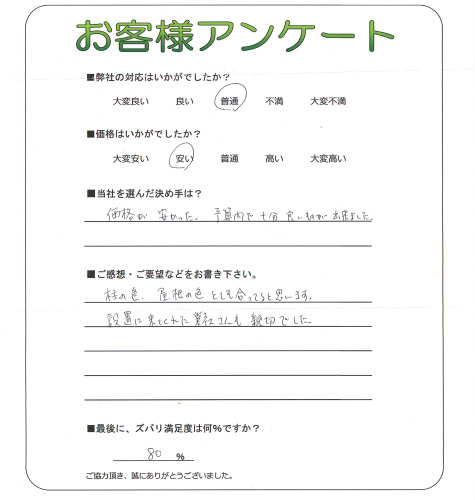 お客様アンケート
■弊社の対応はいかがでしたか?
大変良い 良い 普通 不満 大変不満
■価格はいかがでしたか?
大変安い 安い 普通 高い 大変高い
■当社を選んだ決め手は?
価格が安かった。予算内で十分良い物が出来ました
■ご感想・ご要望などをお書き下さい。
柱の色、屋根の色とても合ってると思います。
設置に来てくれた業者さんも親切でした。
■最後に、ズバリ満足度は何%ですか?
80 %
ご協力頂き、誠にありがとうございました。